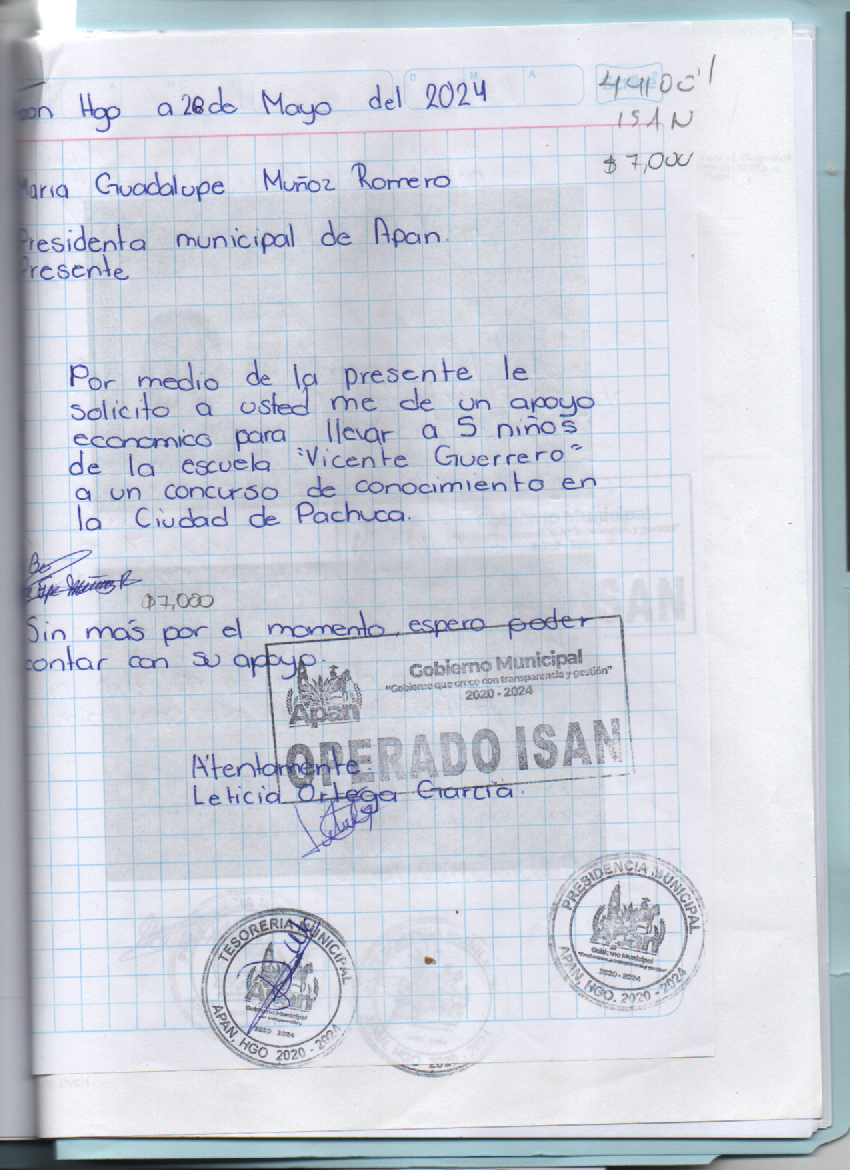 Hgo a 28 de Mayo del 2024
441001
ISAN
$7,000
Maria Guadalupe Muñoz Romero
Presidenta municipal de Apan.
Presente
Por medio de la presente le
solicito a usted me de un apoyo
economico para llevar a 5 niños
de la escuela "Vicente Guerrero"
a un concurso de conocimiento en
la Ciudad de Pachuca.
$7,000
Sin más por el momento, espero poder
contar con su apoyo.
Gobierno Municipal
"Gobierno que crece con transparencia y gestión"
2020 - 2024
Apan
OPERADO ISAN
Atentamente.
Leticia Ortega Garcia.
PRESIDENCIA MUNICIPAL
Gobierno Municipal
2020 - 2024
APAN, HGO. 2020 - 2024
TESORERIA MUNICIPAL
Apan
Gobierno Municipal
2020 - 2024
APAN, HGO 2020 - 2024